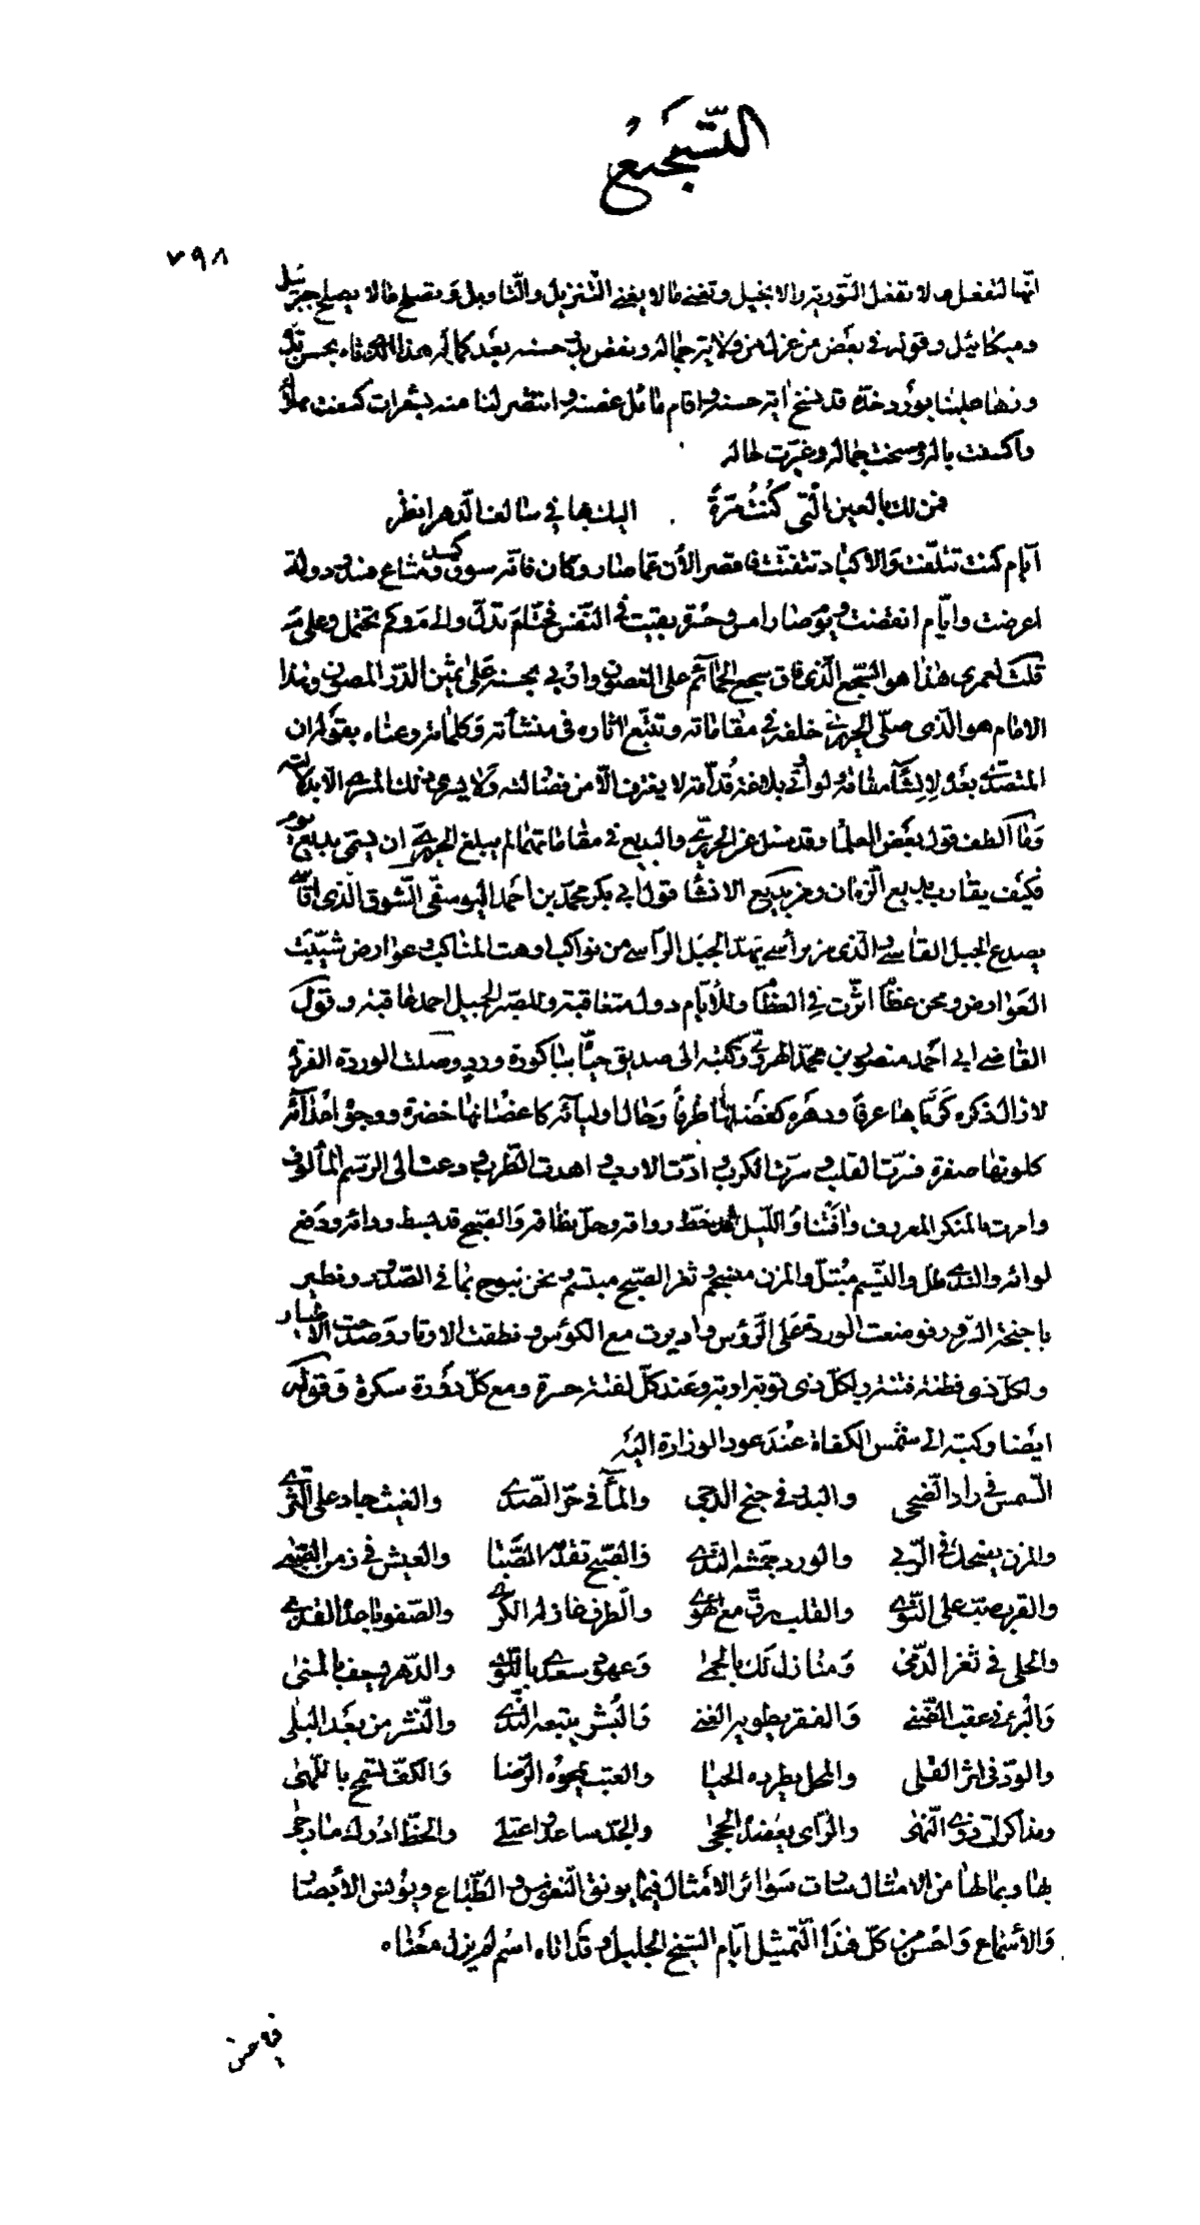 التسجيع
٧٩٨
انها لتفعل ما لا تفعل التورية والانجيل وتغنى ما لا يغنى التنزيل والتاويل وتصلح ما لا يصلح جبرئيل
وميكائيل وقوله فى بعض من عزل من ولاية جماله ونفض حسنه بعد كماله هذا بحسن
وزها علينا بورد خده قد نسخ اية حسنه واقام مائل غصنه وانتصر لنا منه بشعرات كسفت هلاله
واكسفت باله ومسخت جماله وغيرت حاله
فمن لك بالعين التى كنت مرة اليك بها فى سالف الدهر انظر
ايام كنت تتلفت والاكباد تتفتت فاقصر الأن عما صار وكان فانه سوق كسد ومتاع فسد ودولة
اعرضت وايام انقضت ويوم صار امس وحسرة بقيت فى النفس فحتام تدل والام وكم تحتمل وعلام
قلت لعمرى هذا هو السجع الذى فاق سجع الحمائم على الغصون وازرى بحسنه على ثمين الدر المصون وهذا
الامام هو الذى صلى الحريرى خلفه فى مقاماته وتتبع اثاره فى منشأته وكلماته وعناه بقوله ان
المتصدى بعده لانشآء مقامة ولو اوتى بلاغة قدامة لا يغترف الا من فضالته ولا يسرى ذلك المسرى الا بدلالته
وما الطف قول بعض العلماء وقد سئل عن الحريرى والبديع فى مقاماتهما لم يبلغ الحريرى ان يسمى بديع يوم
فكيف يقارب بديع الزمان ومن بديع الانشا قول ابى بكر محمد بن احمد اليوسفى الشوق الذى اقاسى
يصدع الجبل القاسى والذى مر براسى يهد الجبل الراسى من نواكب اوهت المناكب وعوارض شيبت
العوارض ومحن عظام اثرت فى العظام وللأيام دول متعاقبة وللصبر الجميل احمد عاقبة وقول
القاضى ابى احمد منصور بن محمد الهروى وكتبه الى صديق حياه بباكورة ورد وصلت الوردة الفردة
لا زال ذكره كرياها عرفا ودهره كغضارتها طرفا وحال اوليائه كاغصانها خضرة ووجوه اعدائه
كلونها صفرة فسرت القلب وسرت الكرب وادت الارب واهدت الطرب ودعت الى الرسم المألوف
وامرت بالمنكر المعروف وافتنا والليل قد حط رواقه وحل نطاقه والصبح قد بسط رداءه ورفع
لواءه والندى طل والنسيم مبتل والمزن منسجم وثغر الصبح مبتسم ونحن نبوح بما فى الصدور ونطير
باجنحة السرور فوضعت الوردة على الرؤس واديرت مع الكؤس ونطقت الاوتار وصدحت الاطيار
ولكل ذى فطنة فتنة ولكل ذى توبة اوبة وعند كل لفتة حسرة ومع كل دورة سكرة وقوله
ايضا وكتبه الى شمس الكفاة عند عود الوزارة اليه
الشمس فى راد الضحى والبدر فى جنح الدجى والمآء فى حر الصدى والغيث جاد على الثرى
والمزن يضحك فى الربى والورد جمشه الندى والصبح تقدمه الصبا والعيش فى زمن الصبى
والقرب صب على النوى والقلب رق مع الهوى والطرف غازله الكرى والصفو باعده القذى
والحلى فى ثغر الدمى ومنازل لك بالحمى وعهود سعدى باللوى والدهر يسعف بالمنى
والبرء فى عقب الضنى والفقر يطويه الغنى والبشر يتبعه الندى والنشر من بعد البلى
والود فى اثر القلى والمحل يطرده الحيا والعتب يمحوه الرضا والكف تسمح باللهى
ومذاكرات ذوى النهى والراى يعضده الحجى والجد ساعد واعتلى والحظ ادرك ما رجى
بها وبمالها من الامثال سارت سوائر الامثال فيما يونق النفوس والطباع ويؤنس الأبصار
والأسماع واحسن من كل هذا التمثيل ايام الشيخ الجليل وقد اتاه اسم لم يزل معناه